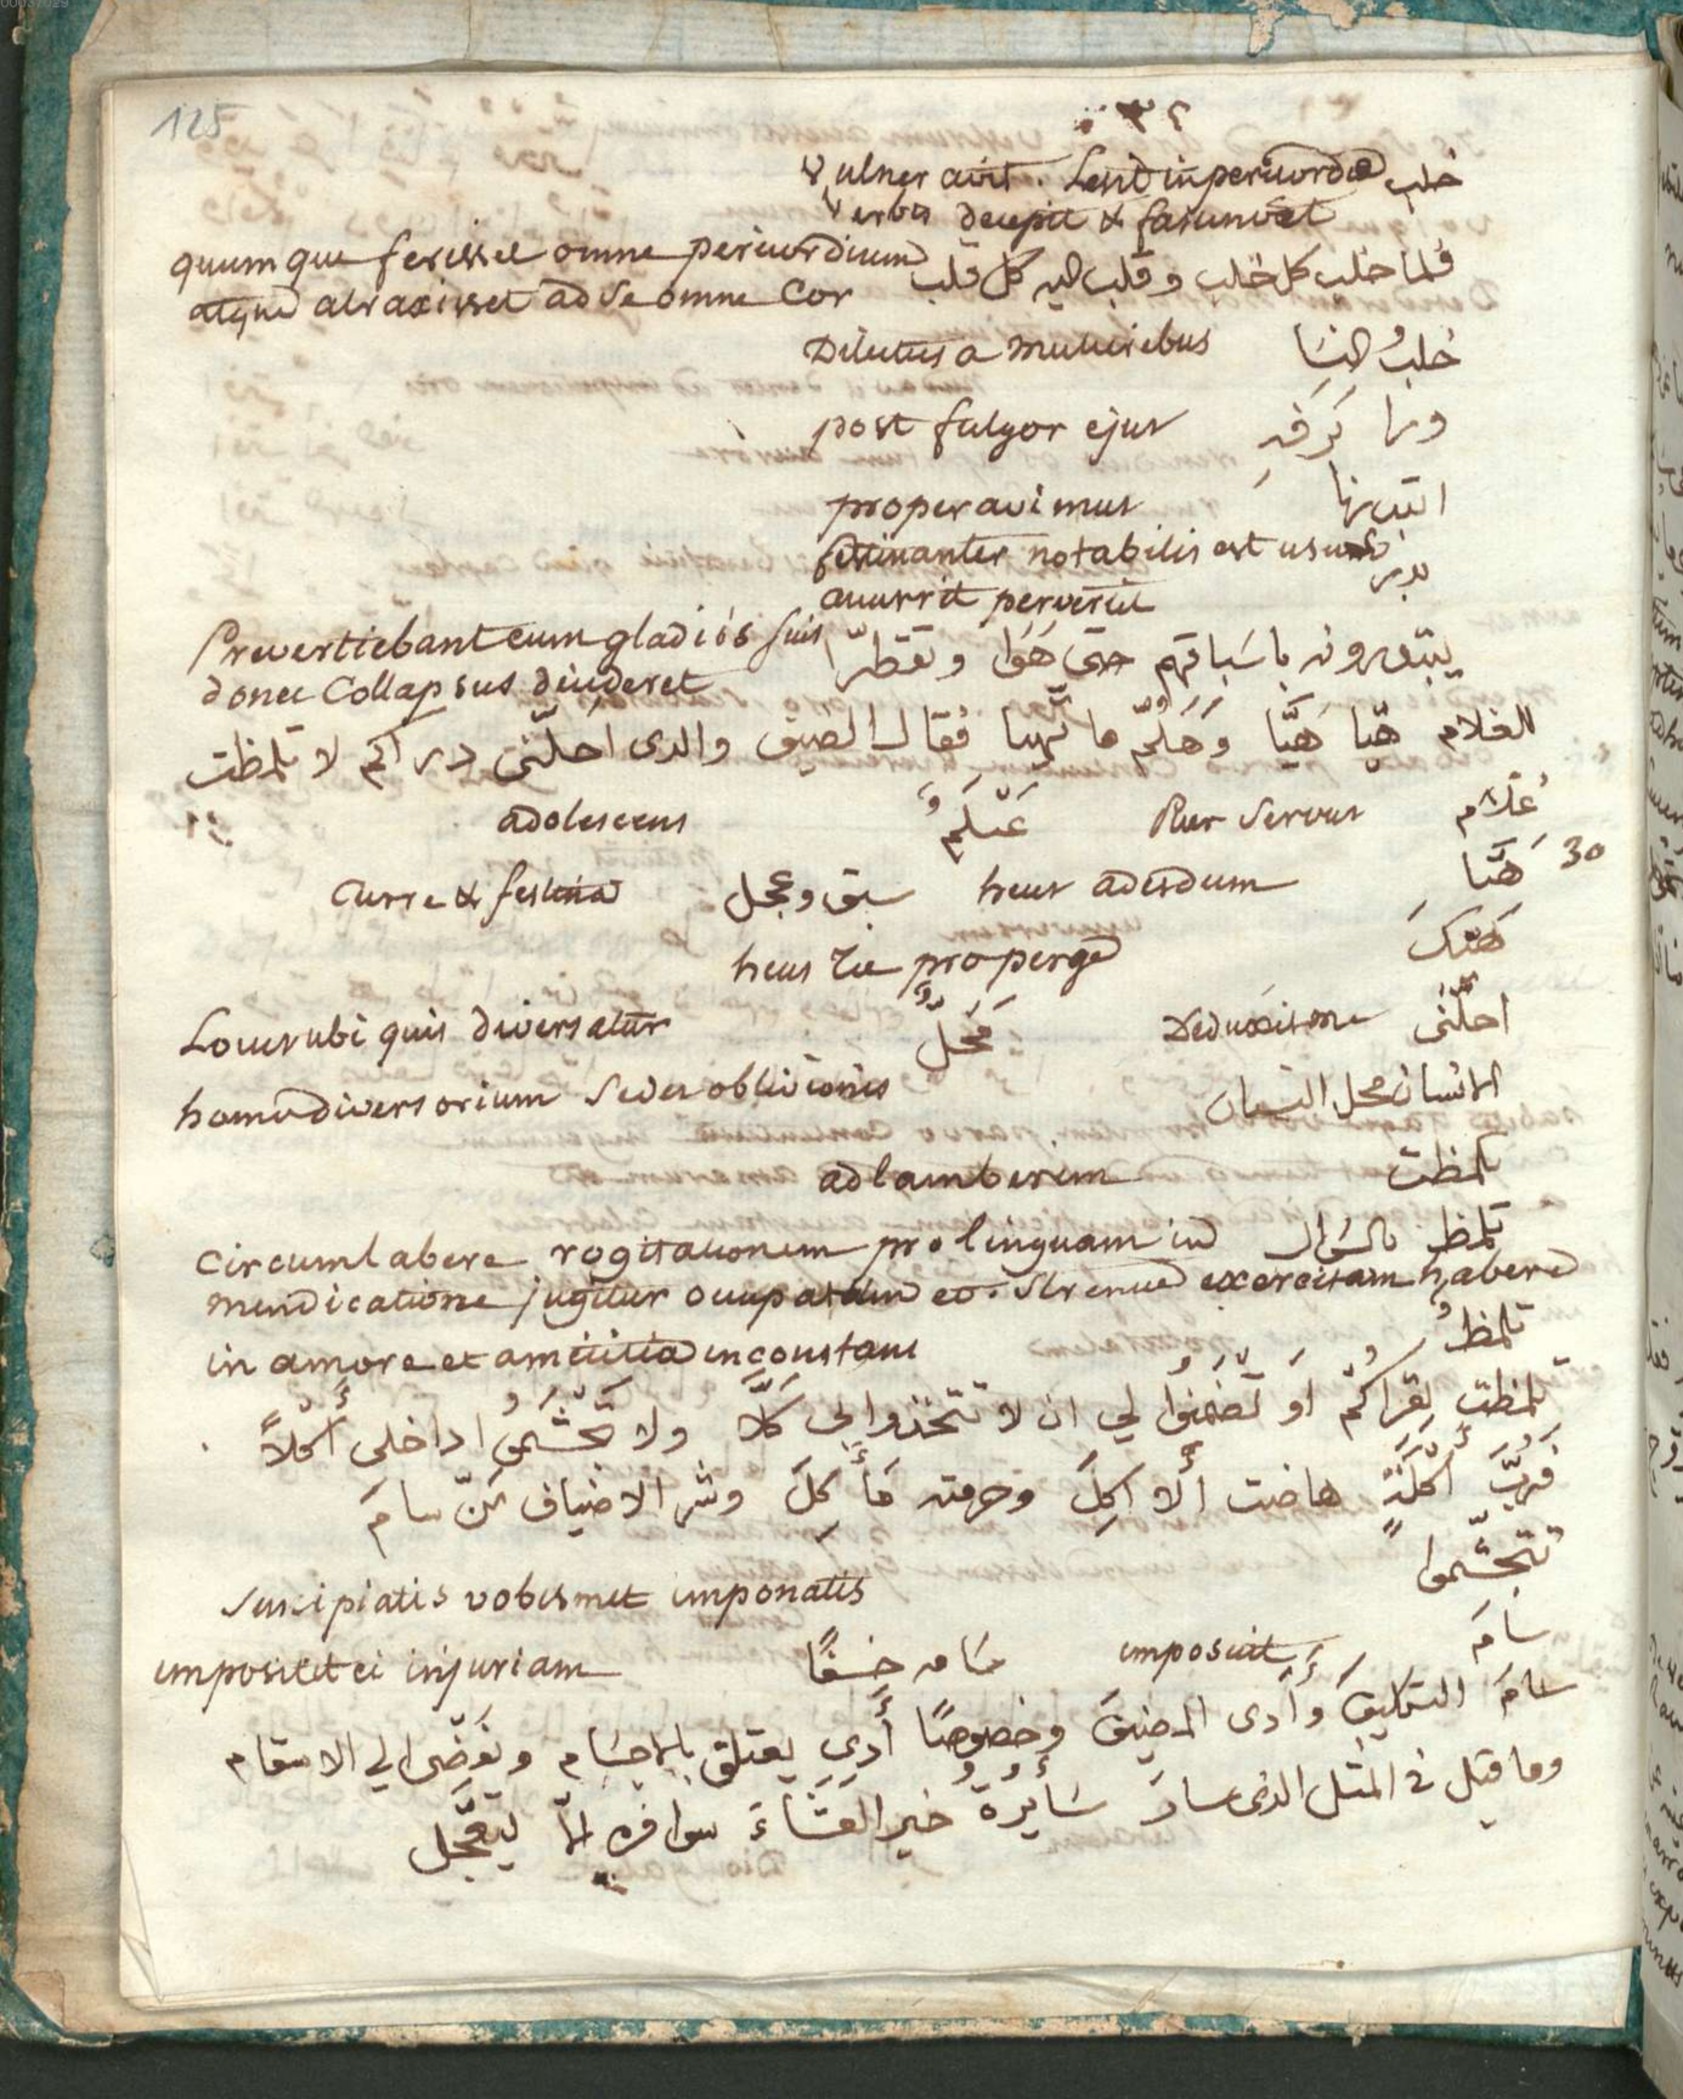 00037029
125
٣٢
خلب Vulneravit. Lesit in pericordio
Verbis decepit & fascinavit
فلما خلب كل خلب وقلب اليه كل قلب quumque ferisset omne pericordium
atque atraxisset ad se omne Cor
خلبُ النسَا Dilectus a mulieribus
post fulgor ejus
ابتدرنا properavimus
بدر festinanter notabilis est usus
accurrit pervertit
يبتدرونه باسيافهم حتى هَوَا وتقطرّا Prevertiebant eum gladiis suis
donec Collapsus
للغلام هَيّا هَيَّا وَهَلُمّ ما تَهيا فقال الضيف والذى احَلّنى دراكم لا تلمظت
غلام Puer Servus adolescens
30 هَيَّا heus adesdum سبق وعجل Curre & festina
هَيْكَ heus tu propera
احلّنى Deduxit me مَحَلٌّ Locus ubi quis diversatur
الانسان محل النسيان homo diversorium Sedes oblivionis
تلمظت adlamberem
تلمظ بالسوال Circumlabere rogitationem pro linguam in
mendicatione jugitur occupatam et strenue exercitam habere
تلمظُ in amore et amicitia inconstans
تلمظت بِقرَاكُمْ اَو تَضْمَنُوا لي ان لا تتخذوانى كَلّاً ولا تَجَشَّمُوا داخلى أَكْلاً
فَرُبَّ أَكْلَةٍ هاضت ألا اكِلَ وحرمته مَأَكِلَ وشر الاضياف مَنّ سامَ
تتجشّموا suscipiatis vobismet imponatis
سامَ imposuit سَامه خسفًا imposuit ei injuriam
سامَ التكليفَ وَأَدى المضيفَ وخصوصًا أَدى يعتلق بالاجسَام ويفضى الي الاسقام
وما قيل في المثل الذى سارَ سَأيرهُ خير العَشَاءَ سوافره الّا ليعَجَّل